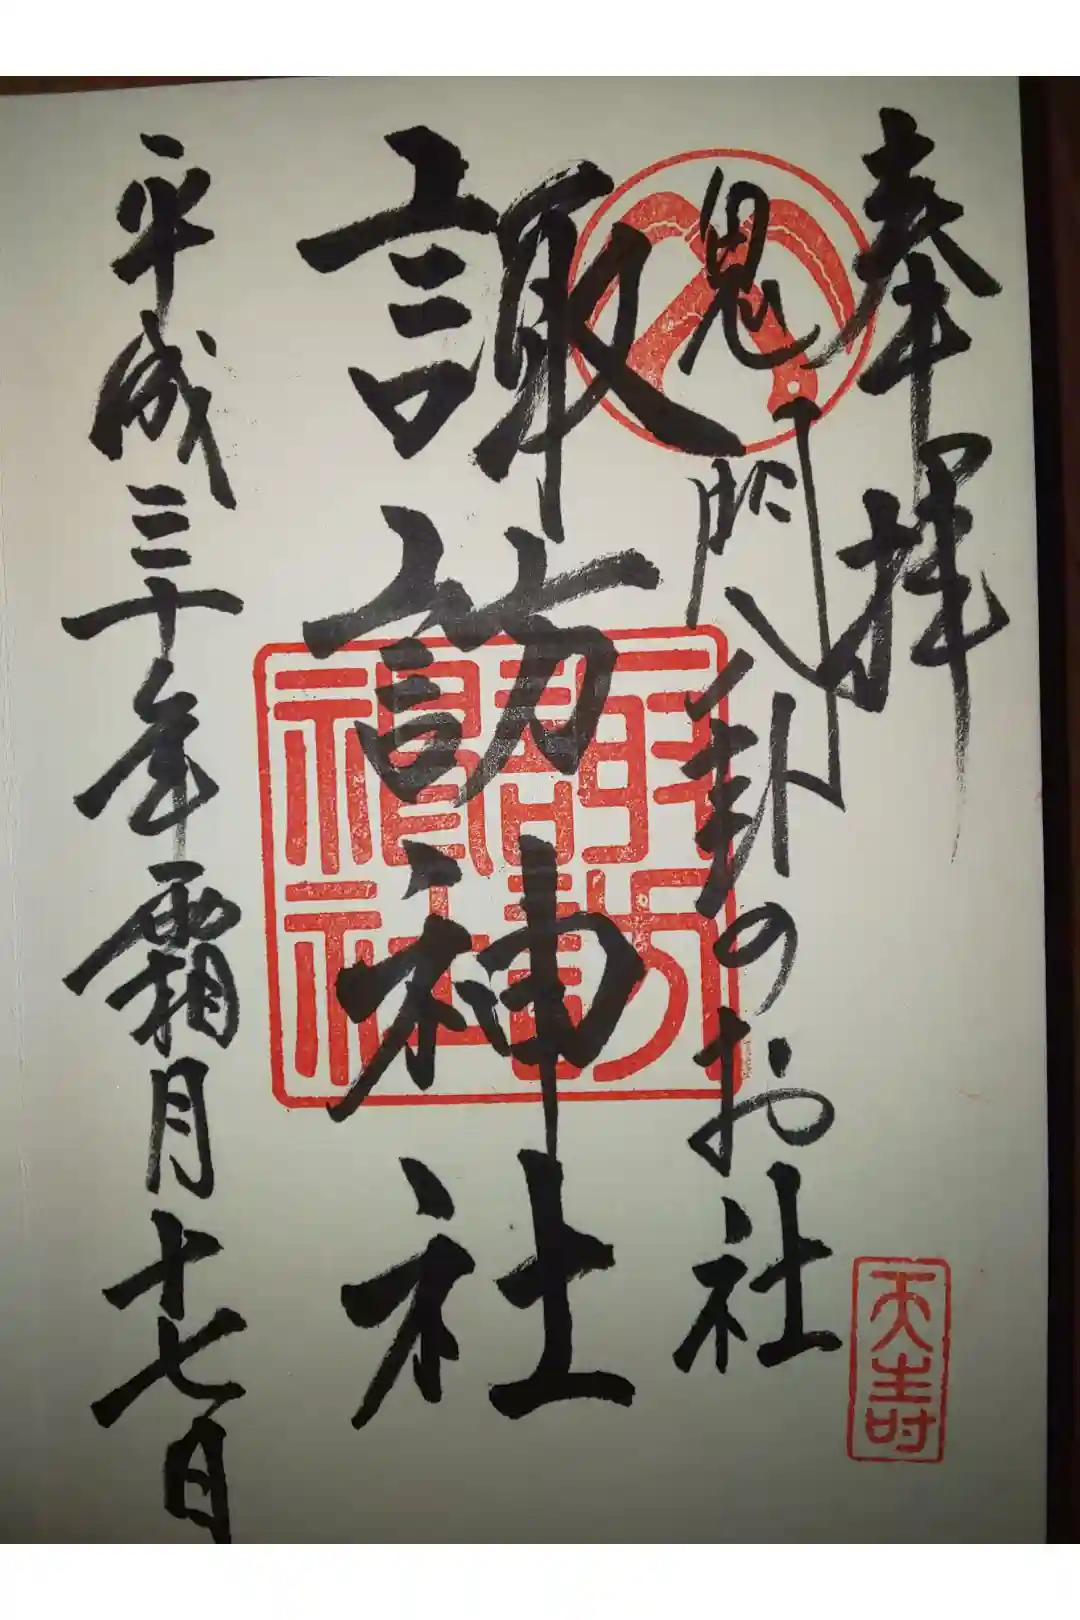 奉拝
鬼門八卦のお社
諏訪神社
平成三十年霜月十七日
諏訪神社
天寿